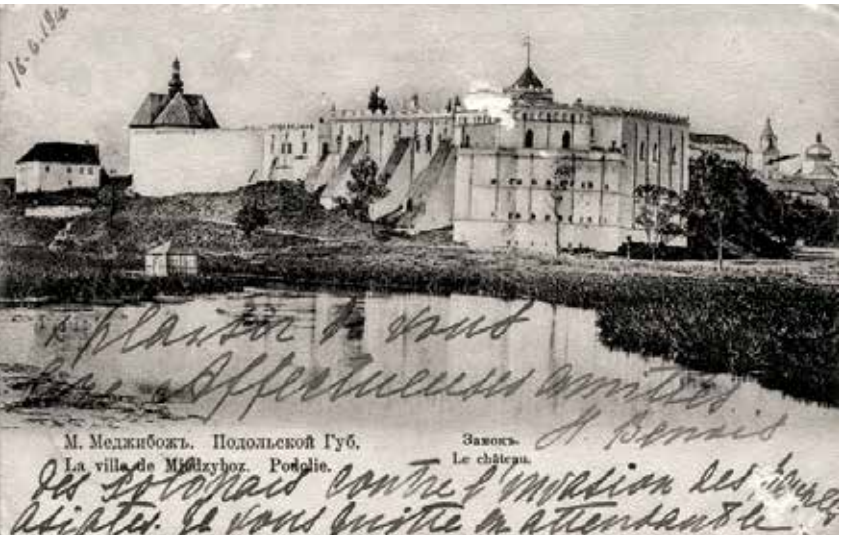 plaisir de vous
Affectueuses amitiés
H Benois
М. Меджибожъ. Подольской Губ.
Замокъ.
La ville de Miedzyboz. Podolie.
Le château.
des polonais contre l'invasion des
asiates. je vous quitte en attendant le